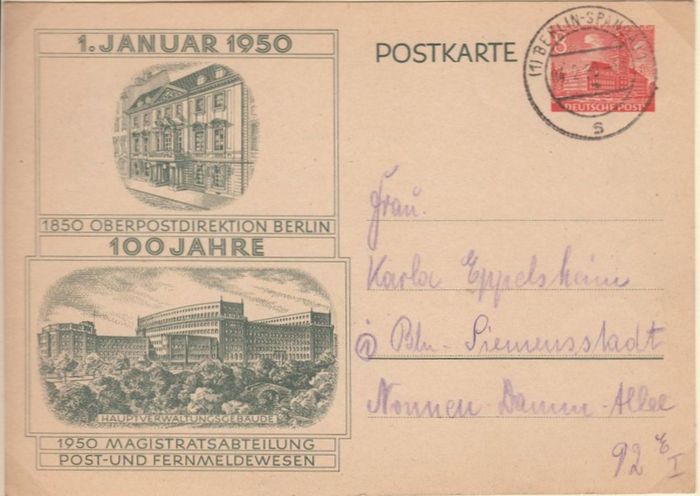 1. JANUAR 1950
1850 OBERPOSTDIREKTION BERLIN
100 JAHRE
HAUPTVERWALTUNGSGEBÄUDE
1950 MAGISTRATSABTEILUNG
POST-UND FERNMELDEWESEN
POSTKARTE
8
DEUTSCHE POST
(1) BERLIN-SPAN
s
Frau.
Karla Eppelsheim
① Bln-Siemensstadt
Nonnen-Damm-Allee
92 E
I